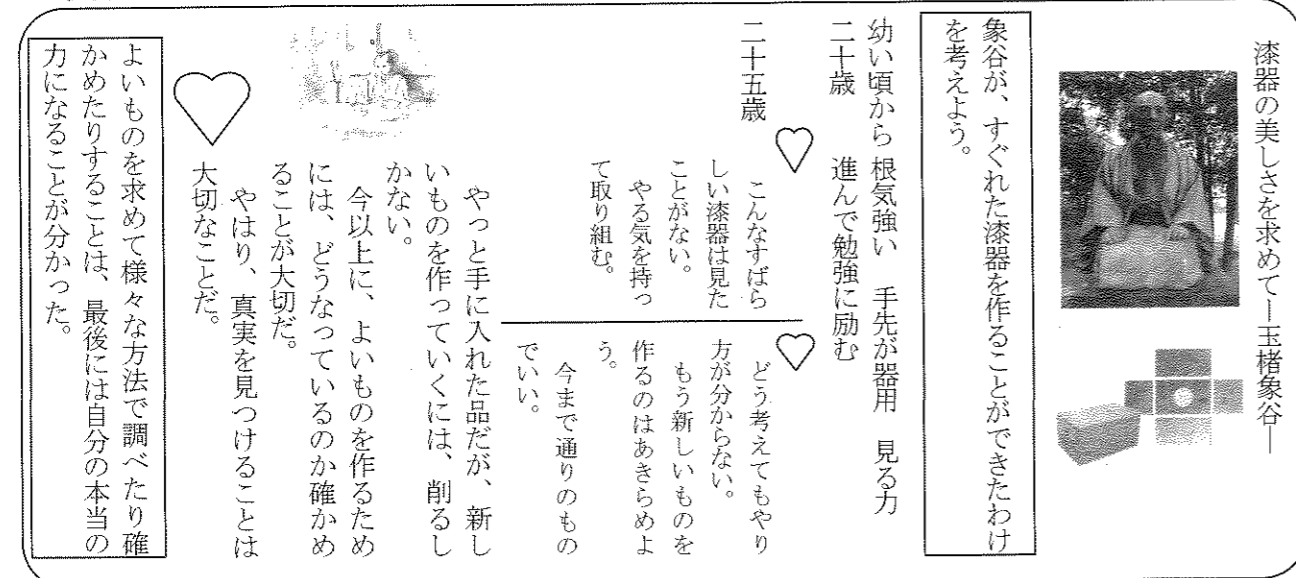 漆器の美しさを求めてー玉楮象谷ー
象谷が、すぐれた漆器を作ることができたわけ
を考えよう。
幼い頃から 根気強い 手先が器用 見る力
二十歳 進んで勉強に励む
二十五歳
こんなすばら
しい漆器は見た
ことがない。
やる気を持っ
て取り組む。
どう考えてもやり
方が分からない。
もう新しいものを
作るのはあきらめよ
う。
今まで通りのもの
でいい。
やっと手に入れた品だが、新し
いものを作っていくには、削るし
かない。
今以上に、よいものを作るため
には、どうなっているのか確かめ
ることが大切だ。
やはり、真実を見つけることは
大切なことだ。
よいものを求めて様々な方法で調べたり確
かめたりすることは、最後には自分の本当の
力になることが分かった。